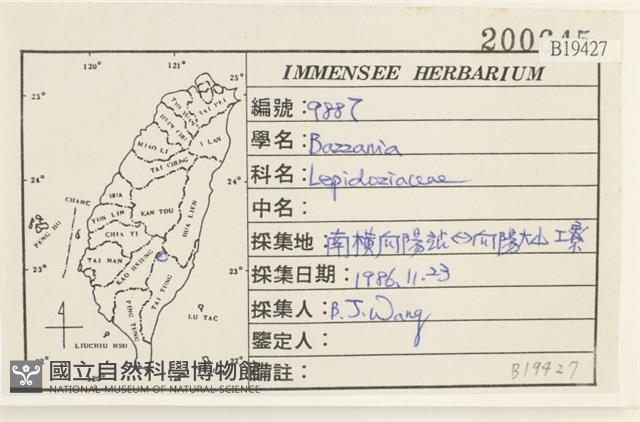 B19427
IMMENSEE HERBARIUM
編號：9887
學名：Bazzania
科名：Lepidoziaceae
中名：
採集地：南橫向陽站↔向陽大山工寮
採集日期：1986.11.23
採集人：B.J.Wang
鑒定人：
備註：
B19427
120°
121°
25°
25°
TAI PEI
I LAN
MIAO LI
TAI CHUNG
24°
24°
CHANG
HUA
PENG HU
YUN LIN
KAN TOU
HUA LIEN
CHIA YI
TAI NAN
KAO HSIUNG
23°
23°
TAI TUNG
PING TUNG
LU TAC
LIUCHIU HSU
國立自然科學博物館
NATIONAL MUSEUM OF NATURAL SCIENCE